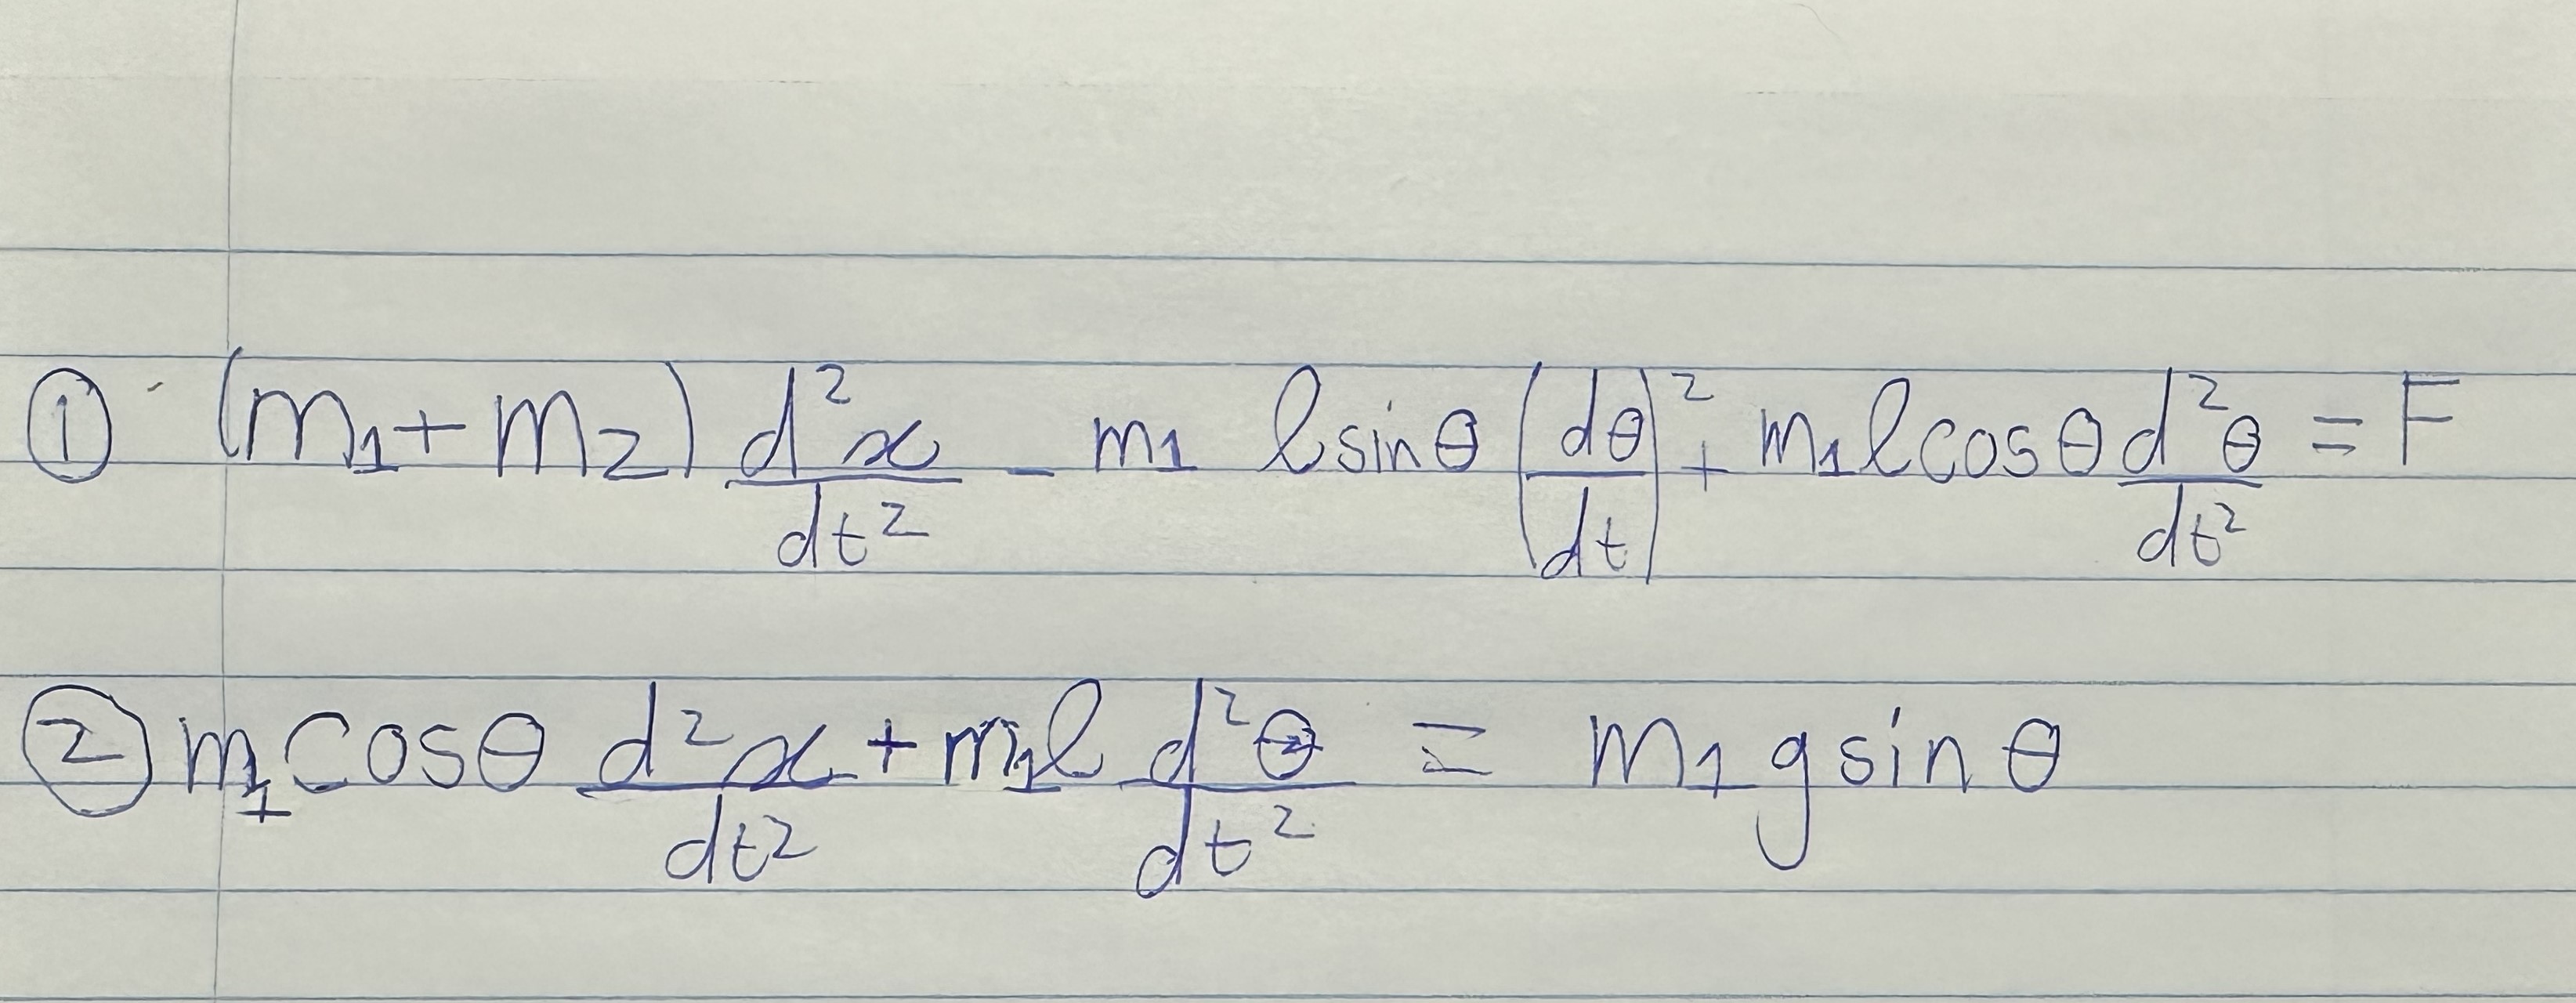 ① (m₁+m₂) d²x/dt² - m₁ l sinθ (dθ/dt)² + m₁ l cosθ d²θ/dt² = F
② m₁ cosθ d²x/dt² + m₁ l d²θ/dt² = m₁ g sinθ